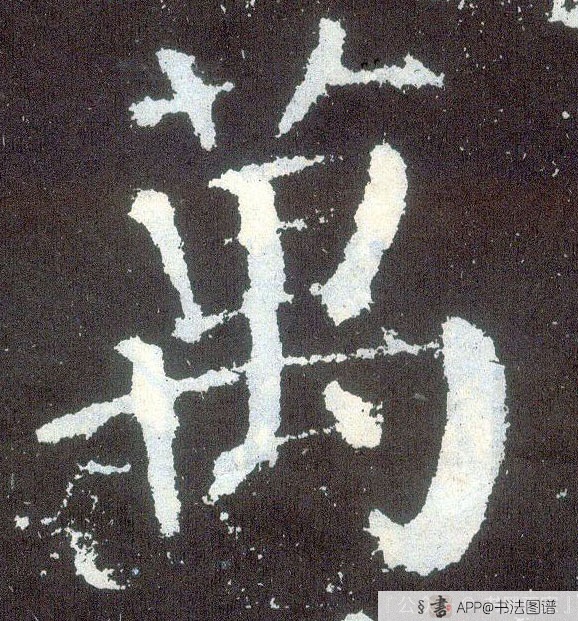 萬
§書 APP@书法图谱